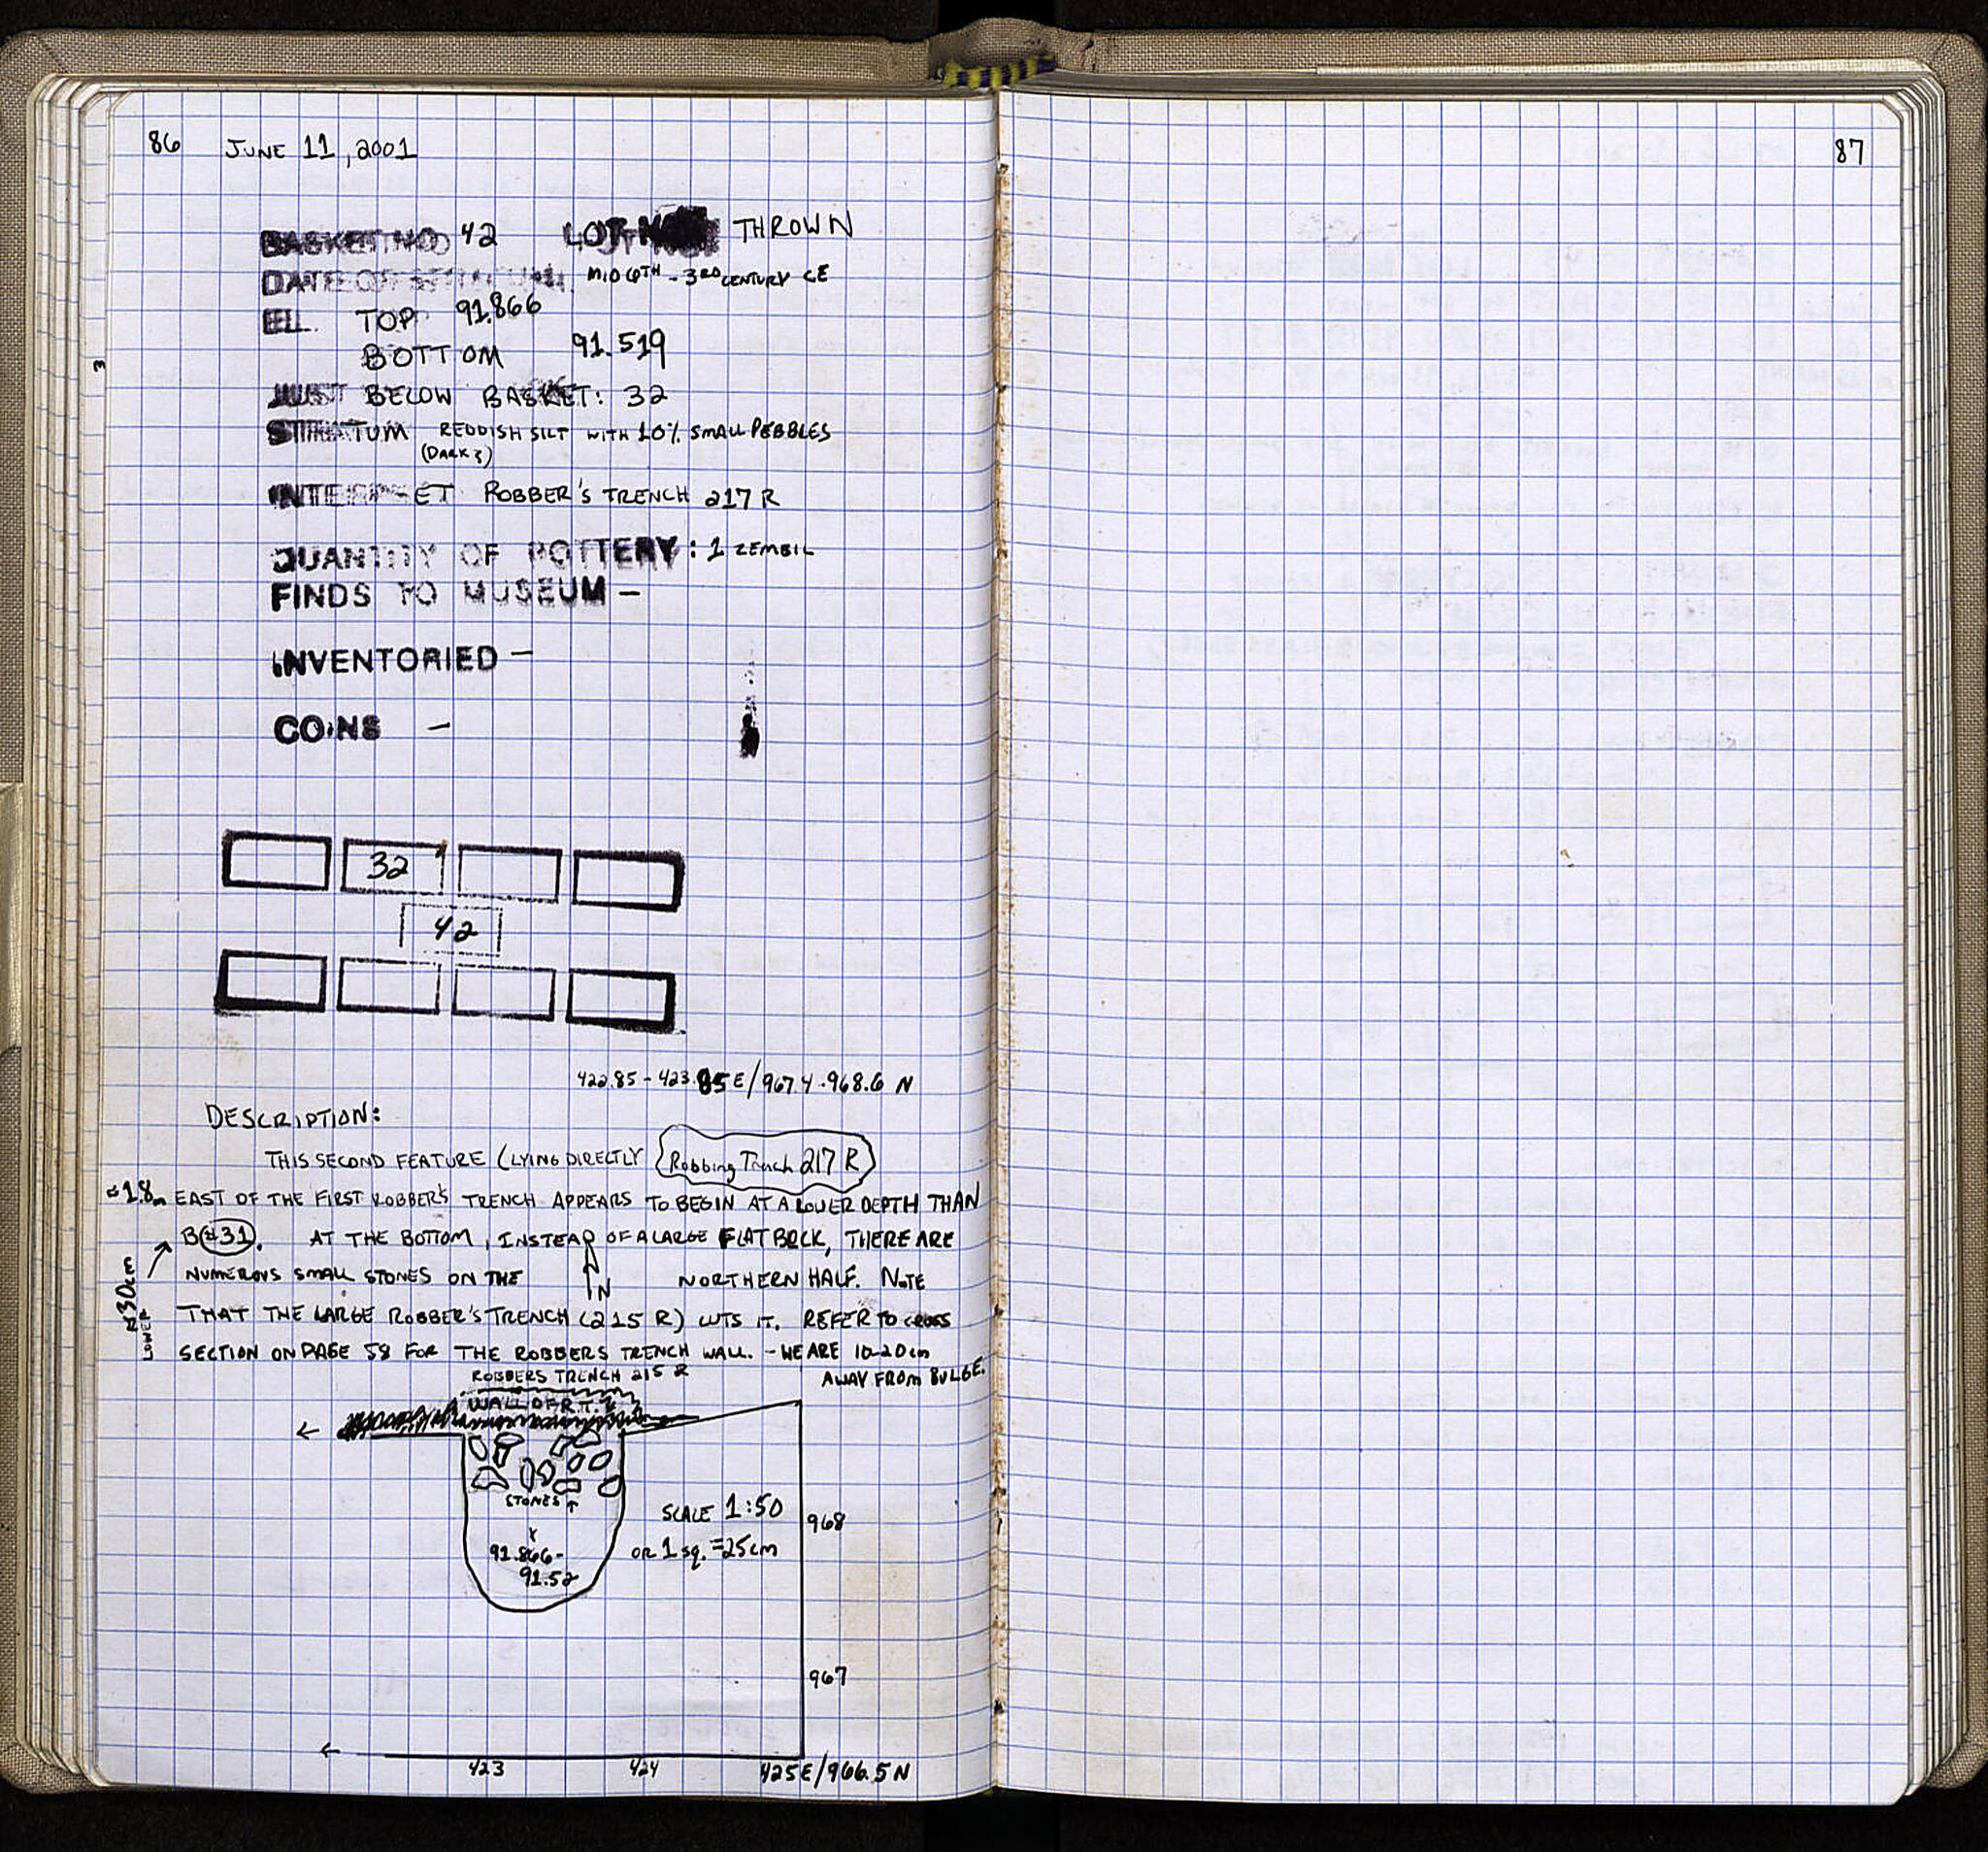 86 JUNE 11, 2001
87
BASKET NO 42 LOT THROWN
DATE OF MID 6TH - 3RD CENTURY CE
EL. TOP 91.866
BOTTOM 91.519
3
JUST BELOW BASKET: 32
STRATUM REDDISH SILT WITH 10% SMALL PEBBLES
(DARK)
INTERPRET ROBBER'S TRENCH 217 R
QUANTITY OF POTTERY: 1 ZEMBIL
FINDS TO MUSEUM -
INVENTORIED -
COINS -
32
42
422.85 - 423.85 E/967.4-968.6 N
DESCRIPTION:
THIS SECOND FEATURE (LYING DIRECTLY Robbing Trench 217 R
≈1.8m EAST OF THE FIRST ROBBER'S TRENCH APPEARS TO BEGIN AT A LOWER DEPTH THAN
B#31. AT THE BOTTOM, INSTEAD OF A LARGE FLAT BRCK, THERE ARE
≈30cm LOWER
NUMEROUS SMALL STONES ON THE NORTHERN HALF. NOTE
N
THAT THE LARGE ROBBER'S TRENCH (215 R) CUTS IT. REFER TO CROSS
SECTION ON PAGE 58 FOR THE ROBBERS TRENCH WALL. - WE ARE 10-20cm
AWAY FROM BULGE.
ROBBERS TRENCH 215 R
WALL OF R.T.
STONES
SCALE 1:50
968
x
91.866-
91.52
OR 1 sq. = 25cm
967
423 424 425E/966.5N